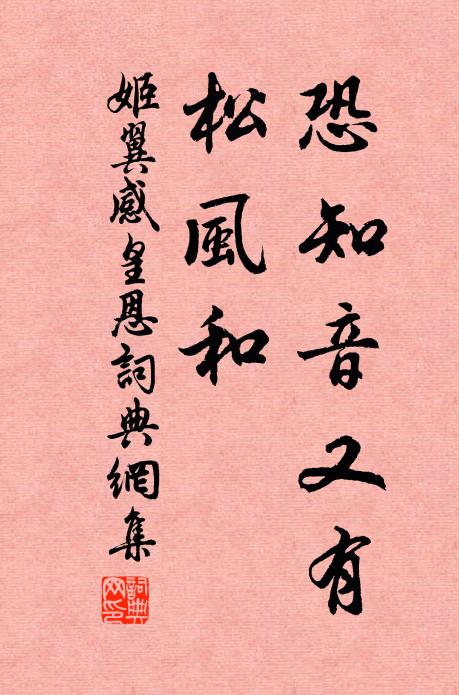 恐知音又有
松風和
姬翼感皇恩詞典網集
詞典網印